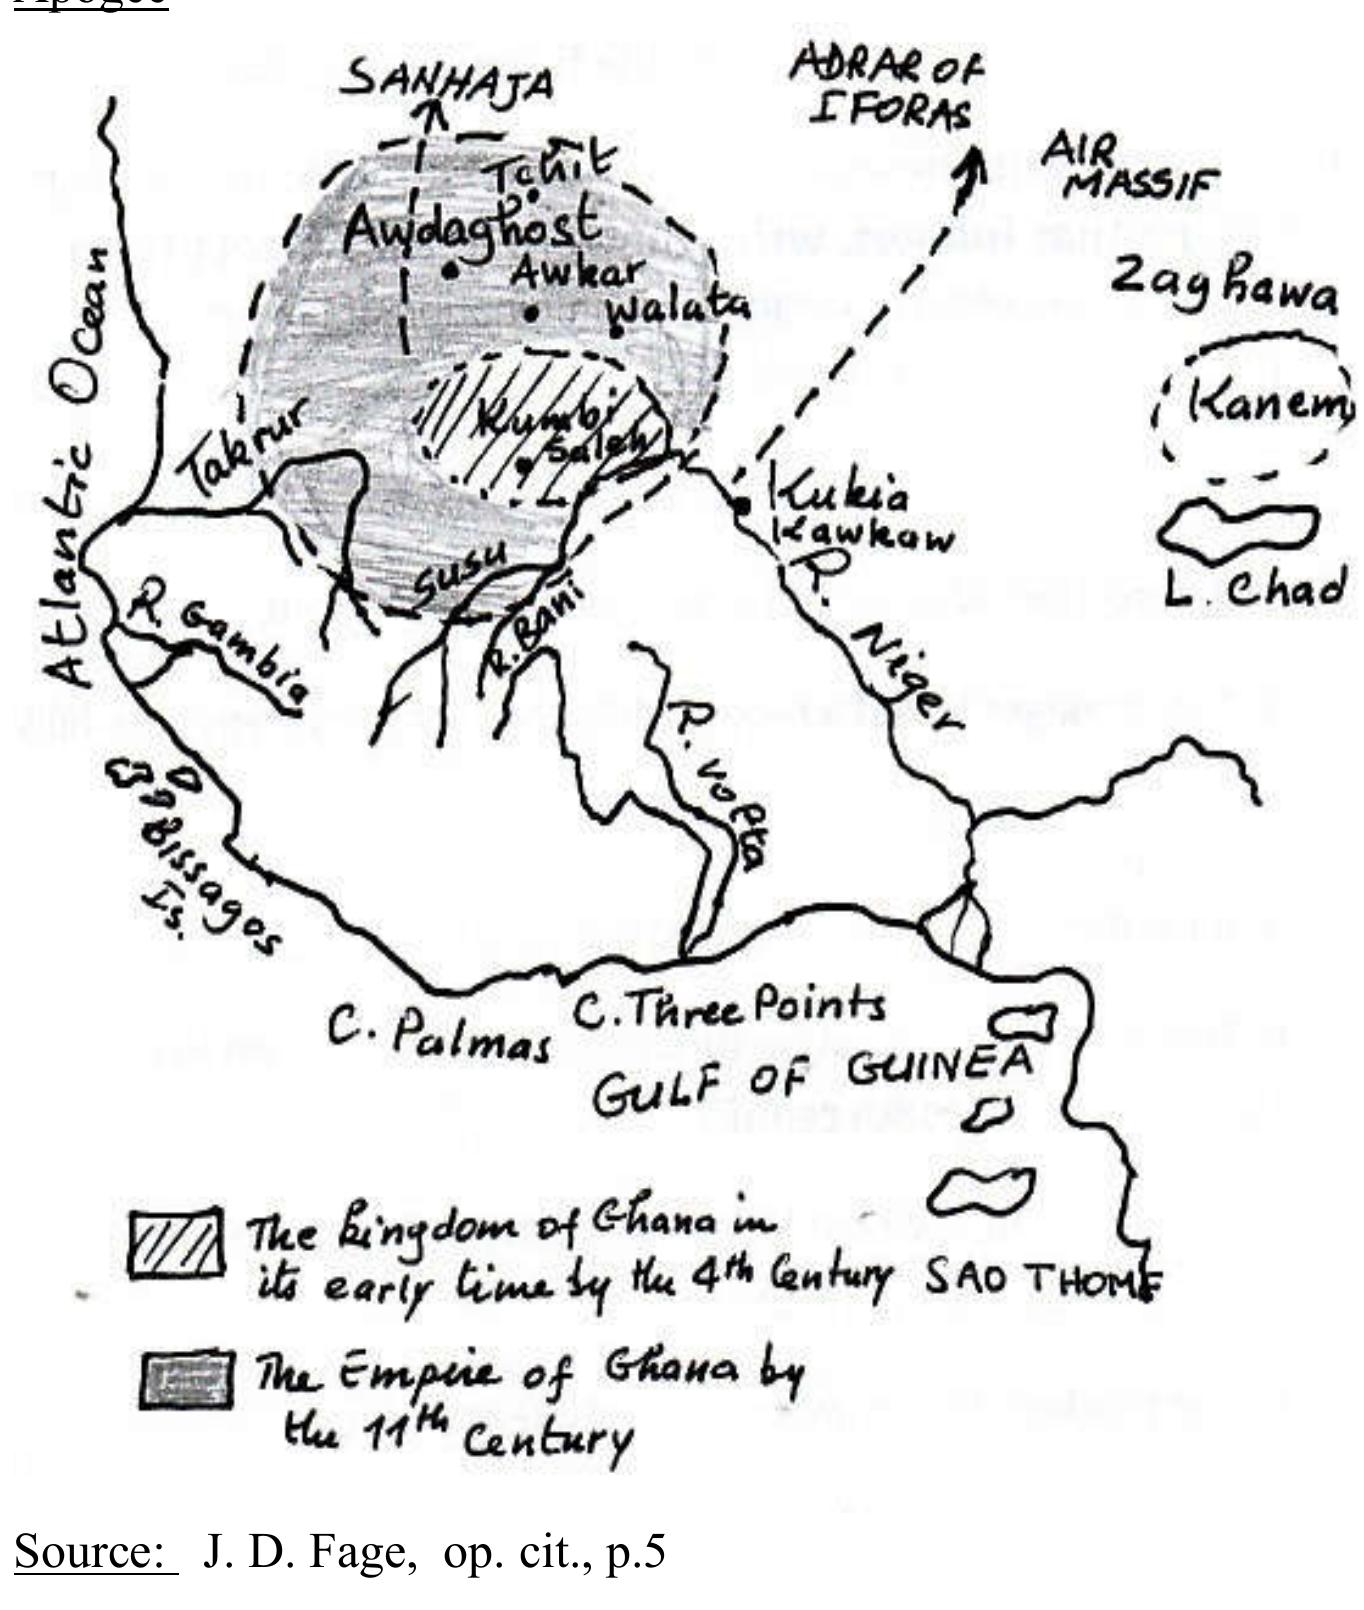 Apogee
SANHAJA
ADRAR OF
IFORAS
AIR
MASSIF
Tchit
Awdaghost
Awkar
Walata
Zaghawa
Kanem
L. Chad
Atlantic Ocean
Takrur
Kumbi
Saleh
Kukia
Kawkaw
R. Niger
Susu
R. Bani
R. Gambia
R. Volta
Bissagos
Is.
C. Palmas
C. Three Points
GULF OF GUINEA
The kingdom of Ghana in
its early time by the 4th Century
SAO THOME
The Empire of Ghana by
the 11th Century
Source: J. D. Fage, op. cit., p.5